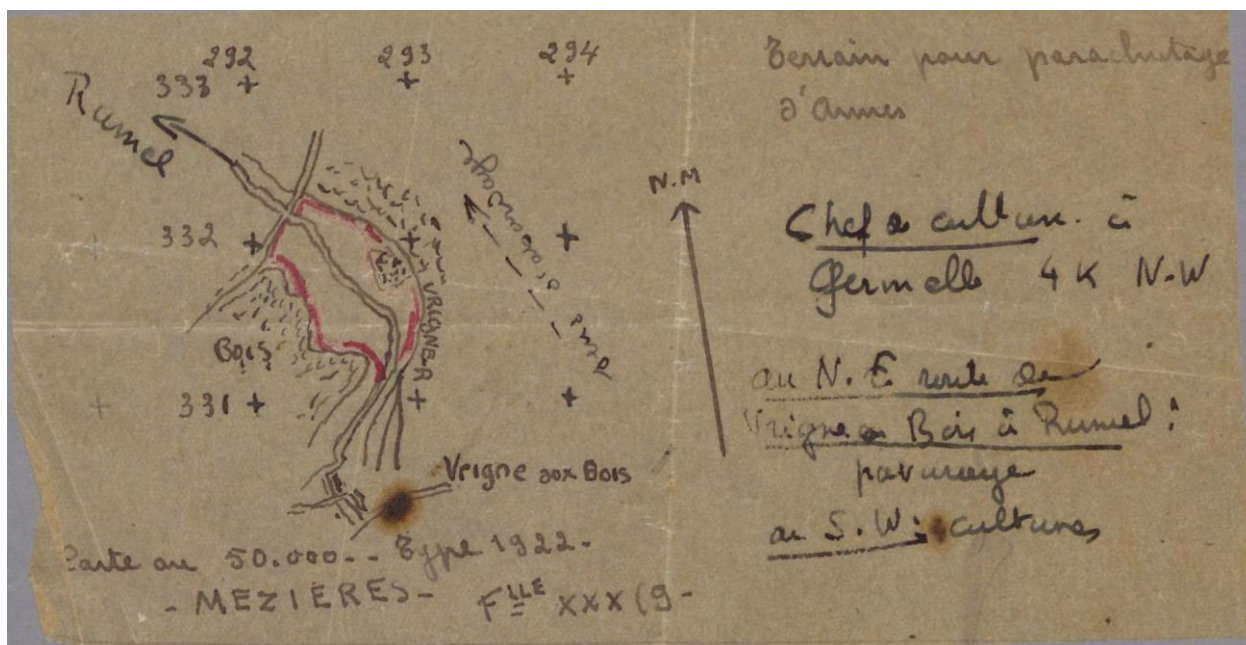 292 293 294
333
Rumel
332
Bois
VRIGNE-R
331
Vrigne aux Bois
Carte au 50.000-- Type 1922-
- MEZIERES- FLLE XXX (9-
sens
N.M
Terrain pour parachutage
d'Armes
Chef de culture à
Germelle 4 K N-W
au N.E route de
Vrigne Bois à Rumel :
paturage
au S.W: cultures